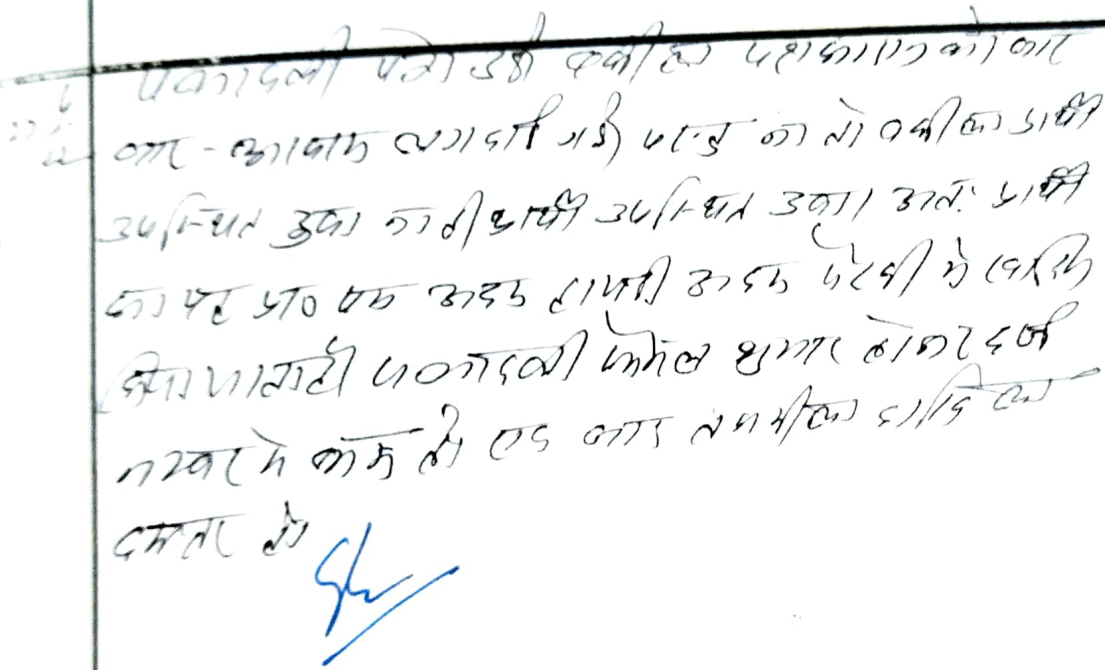 पत्रावली पेश हुई वकील पक्षकारान को बार
बार-आवाज लगवाई गई परन्तु ना तो वकील प्रार्थी
उपस्थित हुआ ना ही प्रार्थी उपस्थित हुआ। अतः प्रार्थी
का प्रा० पत्र अदम हाजरी अदम पैरवी में खारिज
किया जाता है। पत्रावली फैसल शुमार होकर दर्ज
नम्बर से कम हो एवं बाद तकमील दाखिल
दफ्तर हो।